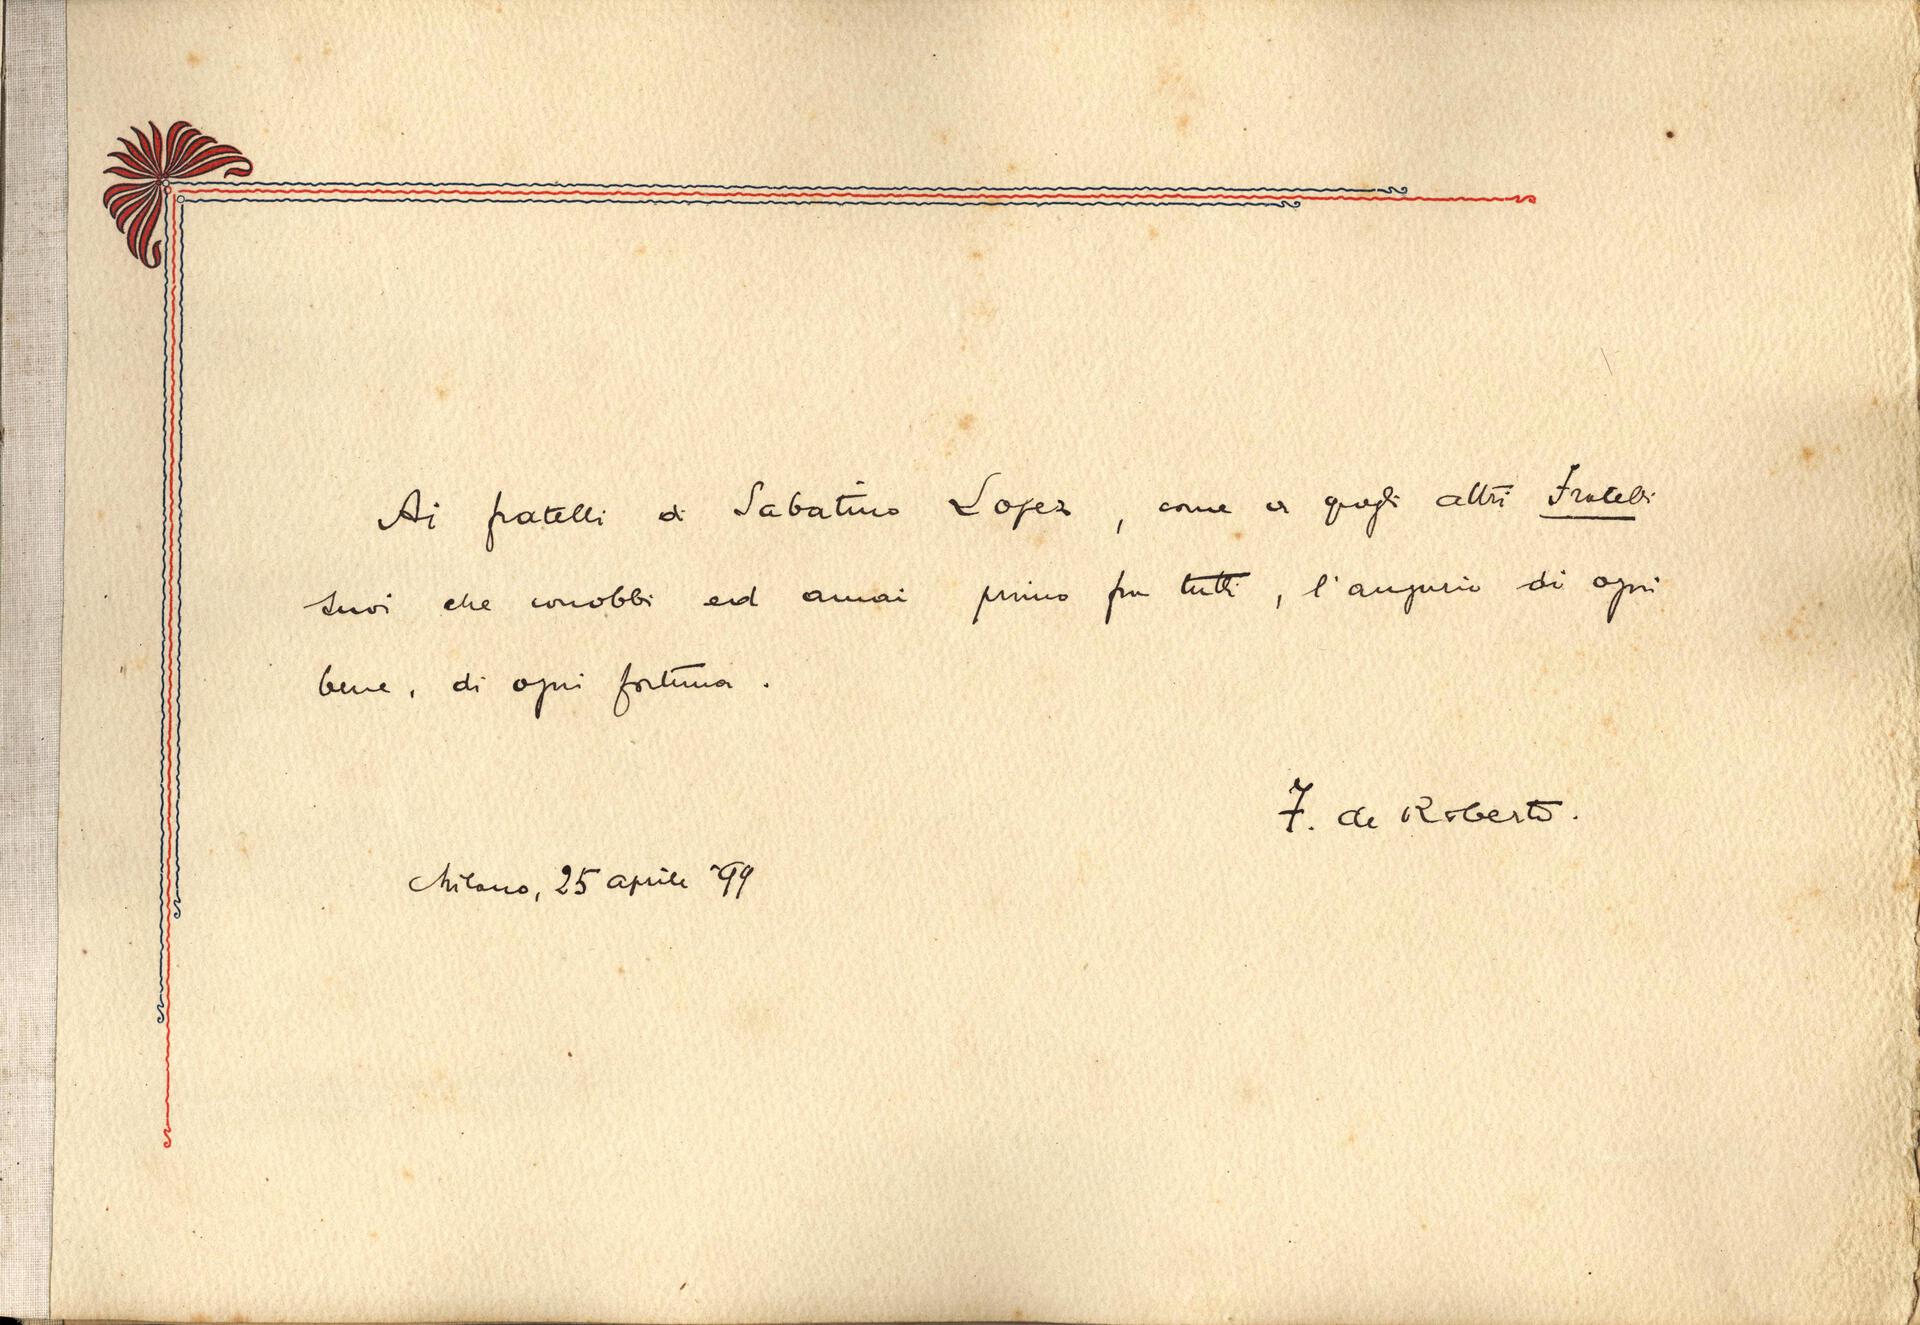 Ai fratelli di Sabatino Lopez, come a quegli altri Fratelli
suoi che conobbi ed amai primo fra tutti, l'augurio di ogni
bene, di ogni fortuna.
F. de Roberto.
Milano, 25 aprile '99